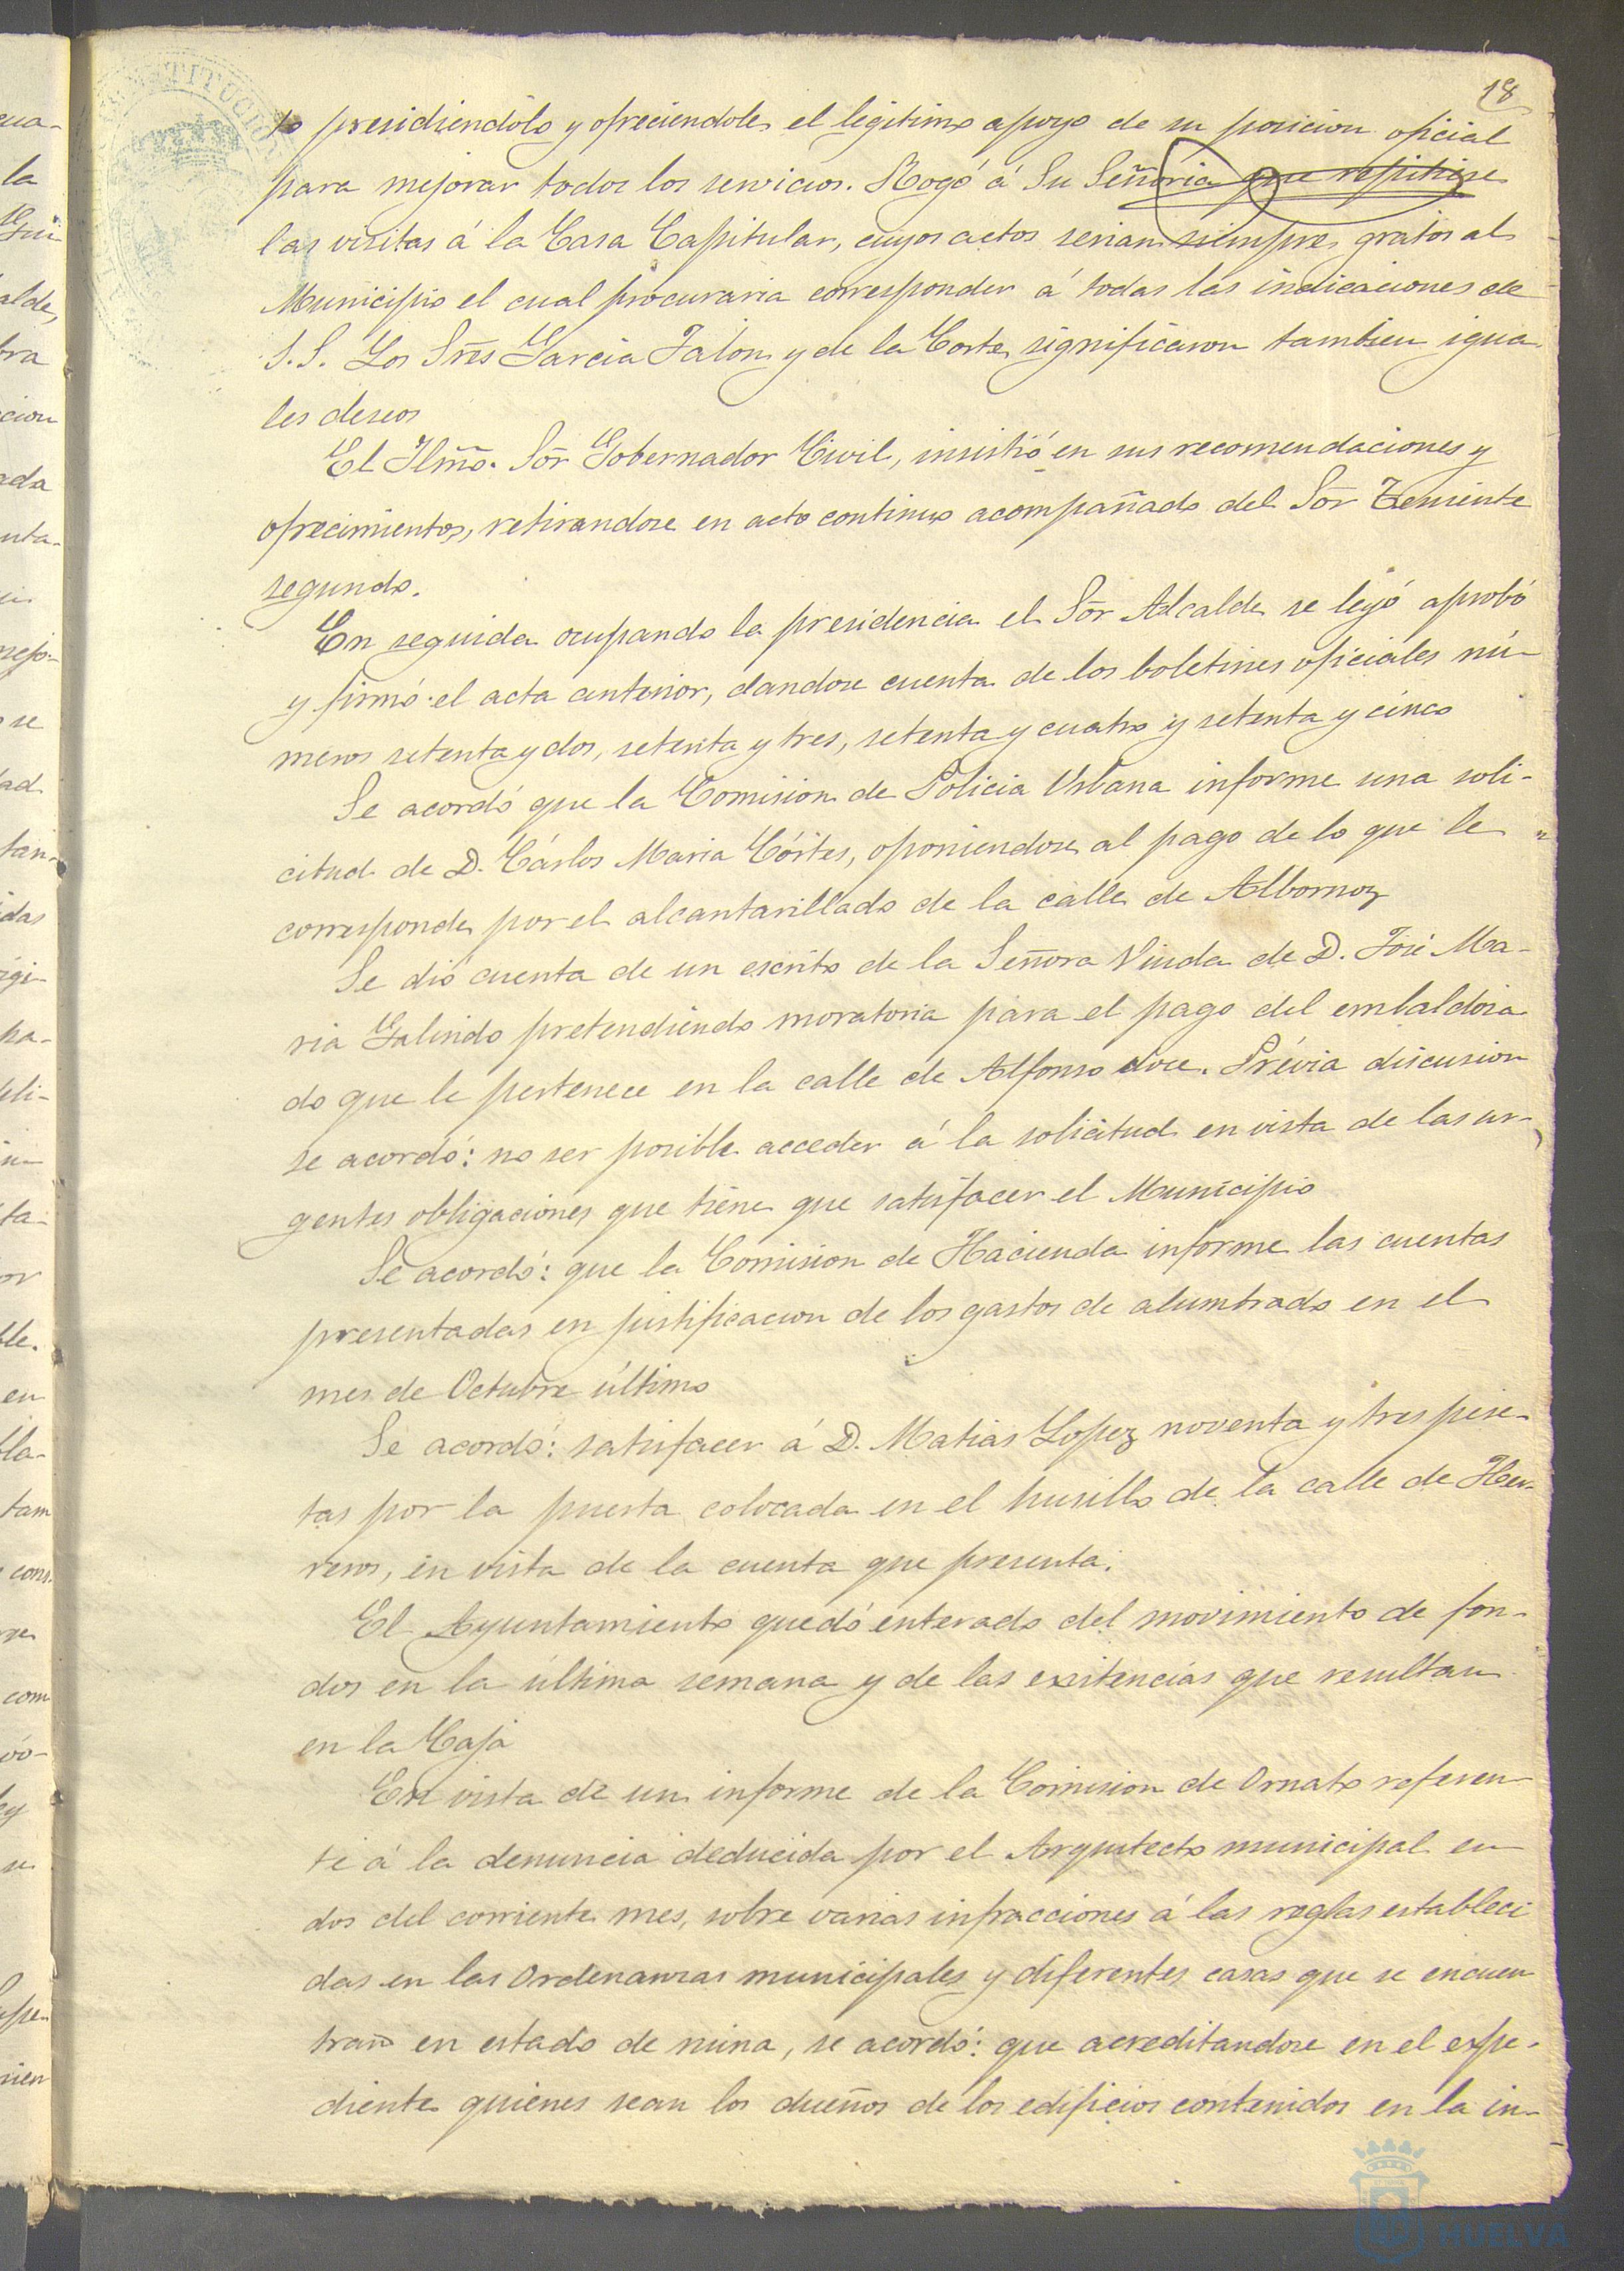 18
to presidiendolo y ofreciendole el legitimo apoyo de su posicion oficial
para mejorar todos los servicios. Rogó á Su Señoria que repitiese
las visitas á la Casa Capitular, cuyos actos serian siempre gratos al
Municipio el cual procuraria corresponder á todas las indicaciones de
S.S. Los Sres Garcia Jalon y de la Corte significaron tambien igua-
les deseos
El Ilmo. Sor Gobernador Civil, insistió en sus recomendaciones y
ofrecimientos, retirandose en acto continuo acompañado del Sor Teniente
segundo.
En seguida ocupando la presidencia el Sor Alcalde se leyó aprobó
y firmó el acta anterior, dandose cuenta de los boletines oficiales nú-
meros setenta y dos, setenta y tres, setenta y cuatro y setenta y cinco
Se acordó que la Comision de Policia Urbana informe una soli-
citud de D. Cárlos Maria Córtes, oponiendose al pago de lo que le
corresponde por el alcantarillado de la calle de Albornoz
Se dió cuenta de un escrito de la Señora Viuda de D. José Ma-
ria Galindo pretendiendo moratoria para el pago del embaldosa
do que le pertenece en la calle de Alfonso doce. Prévia discusion
se acordó: no ser posible acceder á la solicitud en vista de las ur-
gentes obligaciones que tiene que satisfacer el Municipio
Se acordó: que la Comision de Hacienda informe las cuentas
presentadas en justificacion de los gastos de alumbrado en el
mes de Octubre último
Se acordó: satisfacer á D. Matias Lopez noventa y tres pese-
tas por la puerta colocada en el husillo de la calle de Her-
reros, en vista de la cuenta que presenta.
El Ayuntamiento quedó enterado del movimiento de fon-
dos en la última semana y de las existencias que resultan
en la Caja
En vista de un informe de la Comision de Ornato referen
te á la denuncia deducida por el Arquitecto municipal en
dos del corriente mes, sobre varias infracciones á las reglas estableci
das en las Ordenanzas municipales y diferentes casas que se encuen
tran en estado de ruina, se acordó: que acreditandose en el expe-
diente quienes sean los dueños de los edificios contenidos en la in-
HUELVA